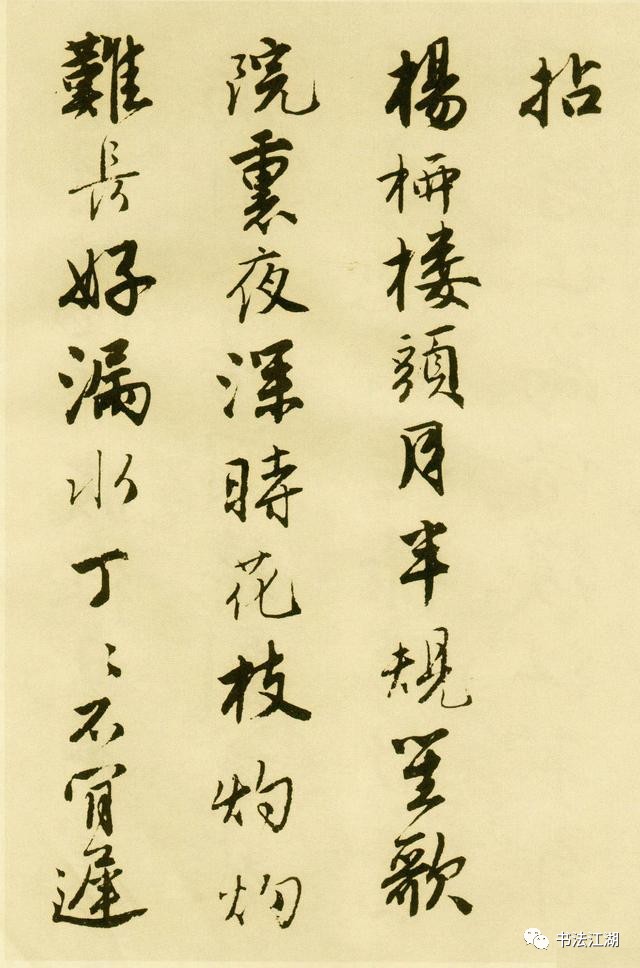 拈
楊桺楼頭月半規笙歌
院裏夜深時花枝灼灼
難長好漏水丁〻不肯遲
书法江湖